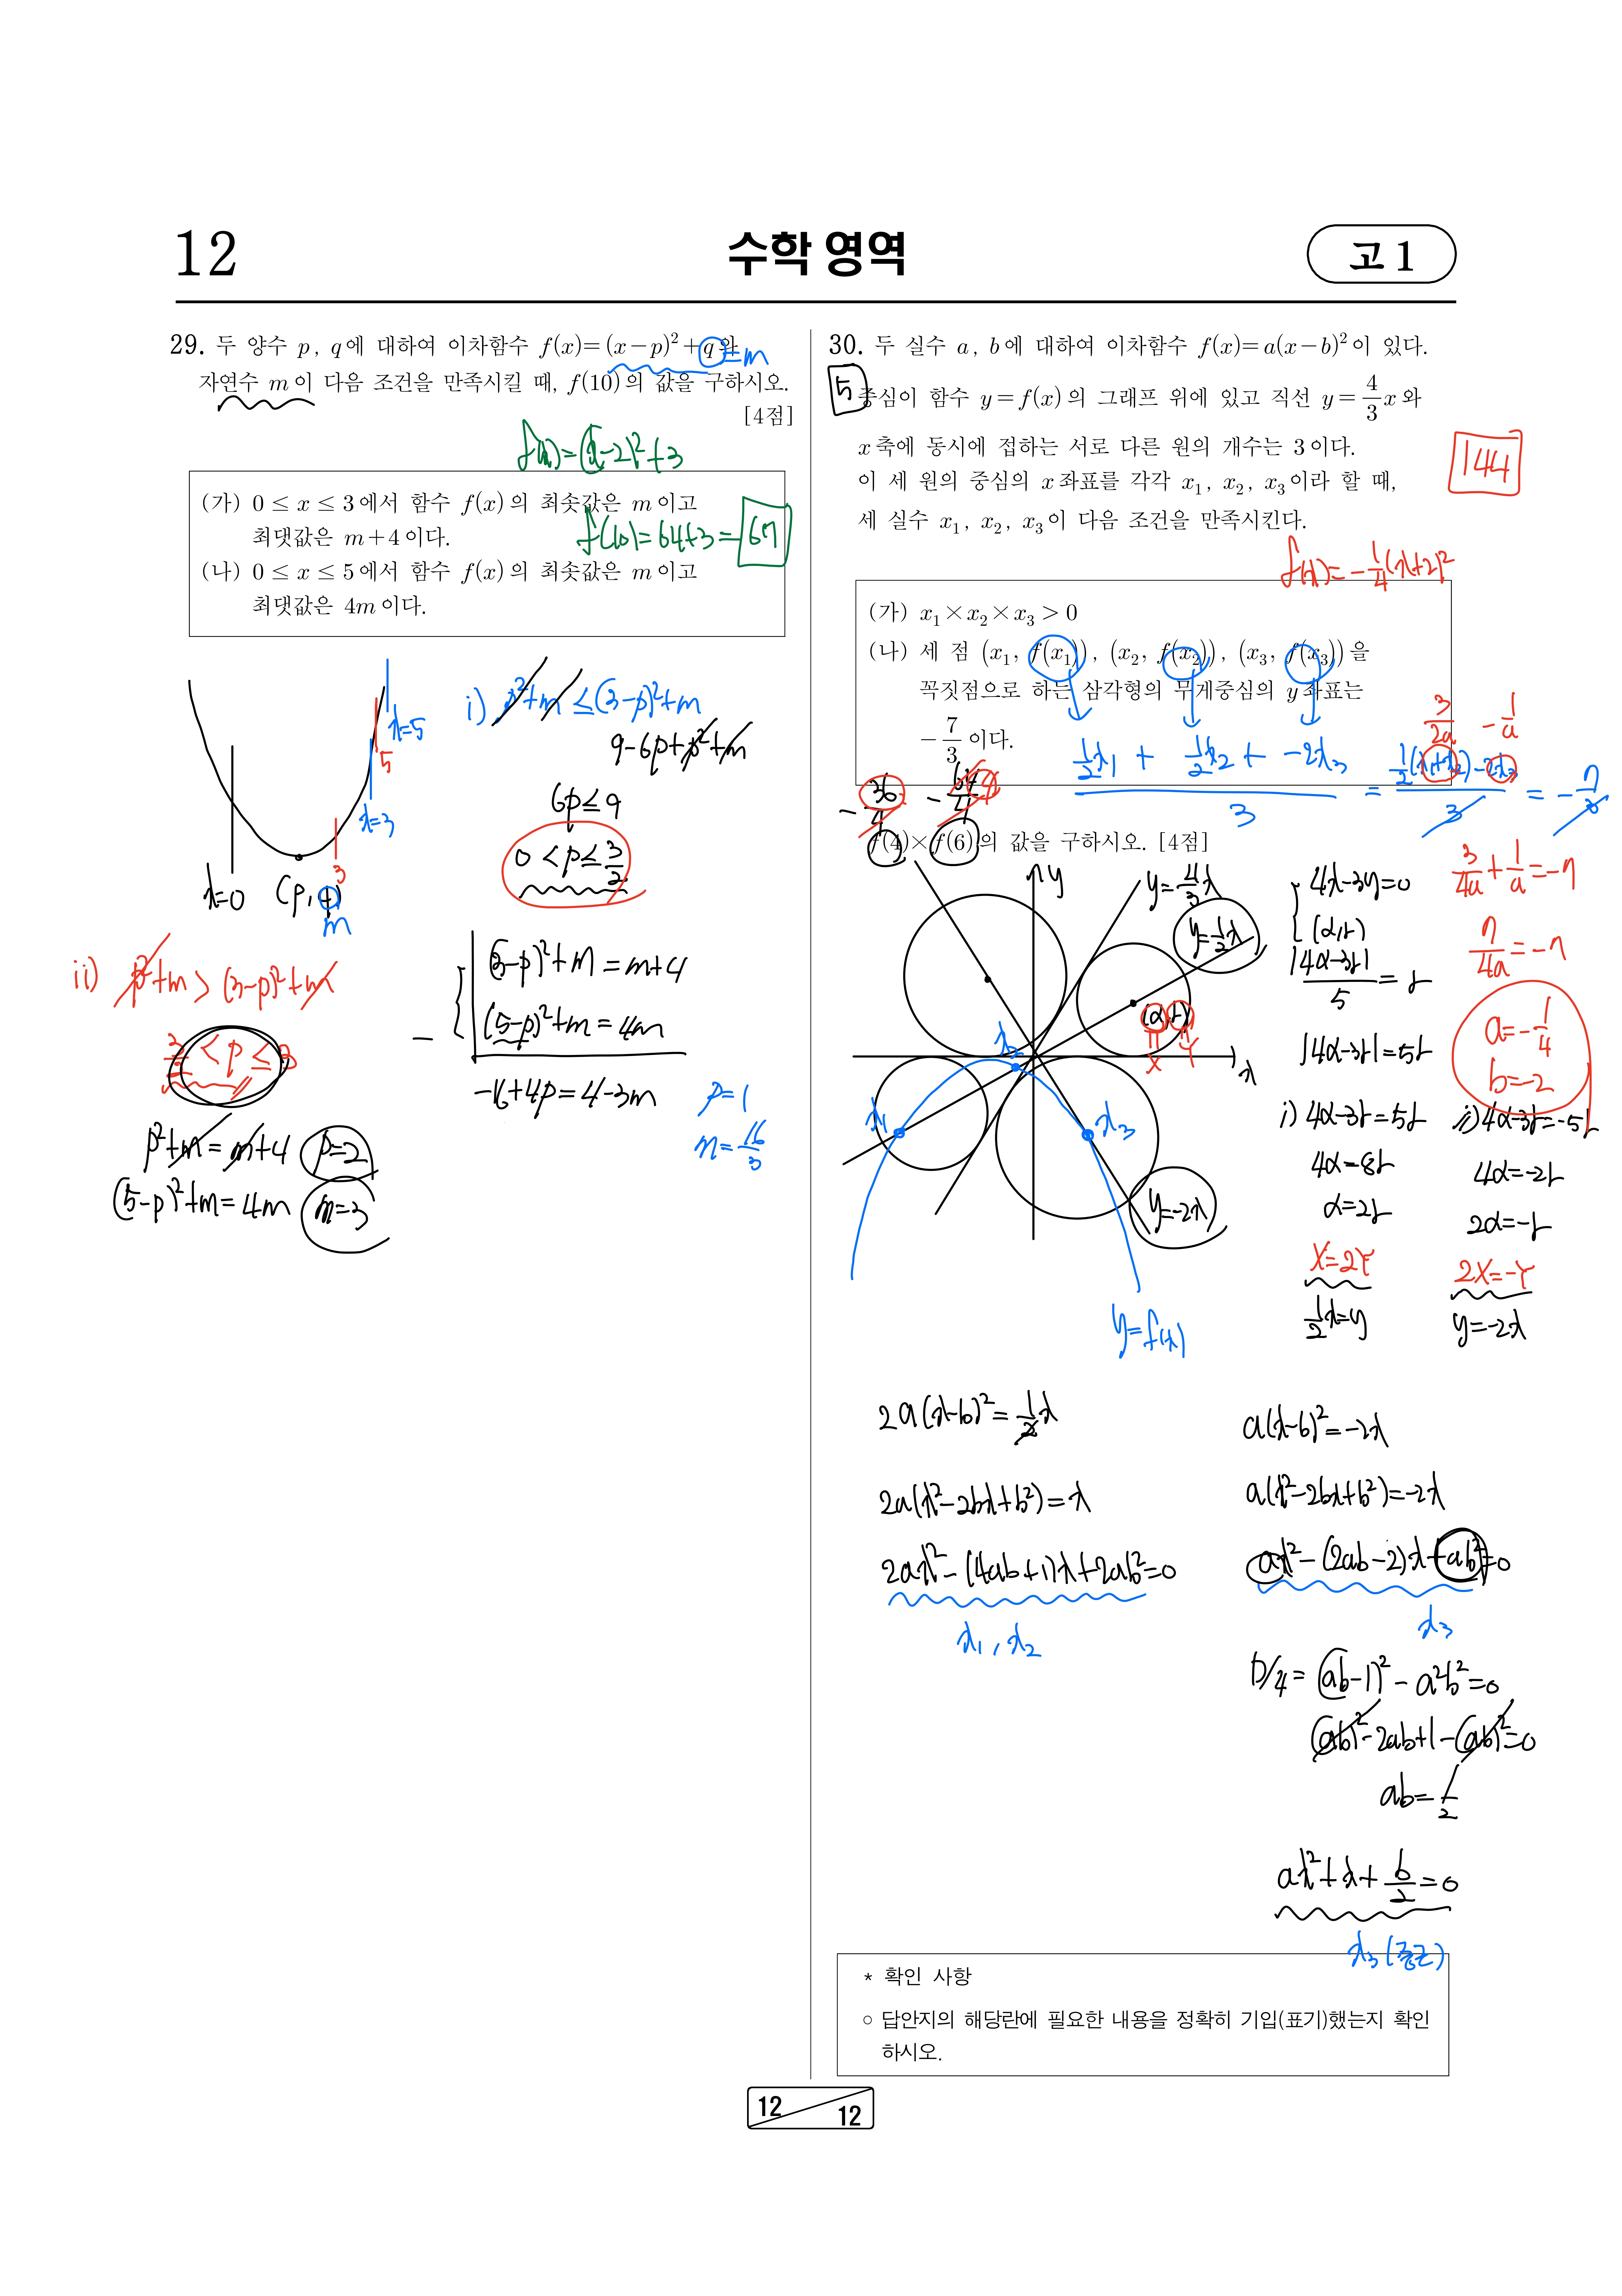 12
수학 영역
고 1
29. 두 양수 p, q에 대하여 이차함수 f(x)=(x−p)²+q와
자연수 m이 다음 조건을 만족시킬 때, f(10)의 값을 구하시오.
[4점]
=m
f(x)=(x-2)²+3
(가) 0 ≤ x ≤ 3에서 함수 f(x)의 최솟값은 m이고
최댓값은 m+4이다.
f(10)=64+3=67
(나) 0 ≤ x ≤ 5에서 함수 f(x)의 최솟값은 m이고
최댓값은 4m이다.
x=0
(p, q)
m
3
5
x=3
x=5
i) p²+m ≤(3-p)²+m
9-6p+p²+m
6p≤9
0<p≤3/2
(3-p)²+m=m+4
- (5-p)²+m=4m
-16+4p=4-3m
p=1
m=16/3
ii) p²+m > (3-p)²+m
3/2 < p ≤ 3
p²+m=m+4 p=2
(5-p)²+m=4m m=3
30. 두 실수 a, b에 대하여 이차함수 f(x)=a(x−b)²이 있다.
5
중심이 함수 y=f(x)의 그래프 위에 있고 직선 y=4/3x와
x축에 동시에 접하는 서로 다른 원의 개수는 3이다.
144
이 세 원의 중심의 x좌표를 각각 x₁, x₂, x₃이라 할 때,
세 실수 x₁, x₂, x₃이 다음 조건을 만족시킨다.
f(x)=-1/4(x+2)²
(가) x₁×x₂×x₃>0
(나) 세 점 (x₁, f(x₁)), (x₂, f(x₂)), (x₃, f(x₃))을
꼭짓점으로 하는 삼각형의 무게중심의 y좌표는
−7/3이다.
3/2a -1/a
(1/2x₁ + 1/2x₂ + -2x₃)/3 = (1/2(x₁+x₂)-2x₃)/3 = -7/3
-36/4 -64/4
f(4)×f(6)의 값을 구하시오. [4점]
3/4a+1/a=-7
7/4a=-7
a=-1/4
b=-2
y
x
y=4/3x
y=1/2x
(α,r)
X Y
x₁
x₂
x₃
y=-2x
y=f(x)
4x-3y=0
(α,r)
|4α-3r|/5=r
|4α-3r|=5r
i) 4α-3r=5r
4α=8r
α=2r
X=2Y
1/2x=y
ii) 4α-3r=-5r
4α=-2r
2α=-r
2X=-Y
y=-2x
2a(x-b)²=1/2x
2a(x²-2bx+b²)=x
2ax²-(4ab+1)x+2ab²=0
x₁, x₂
a(x-b)²=-2x
a(x²-2bx+b²)=-2x
ax²-(2ab-2)x+ab²=0
x₃
D/4=(ab-1)²-a²b²=0
(ab)²-2ab+1-(ab)²=0
ab=1/2
ax²+x+b/2=0
x₃(중근)
* 확인 사항
○ 답안지의 해당란에 필요한 내용을 정확히 기입(표기)했는지 확인
하시오.
12
12